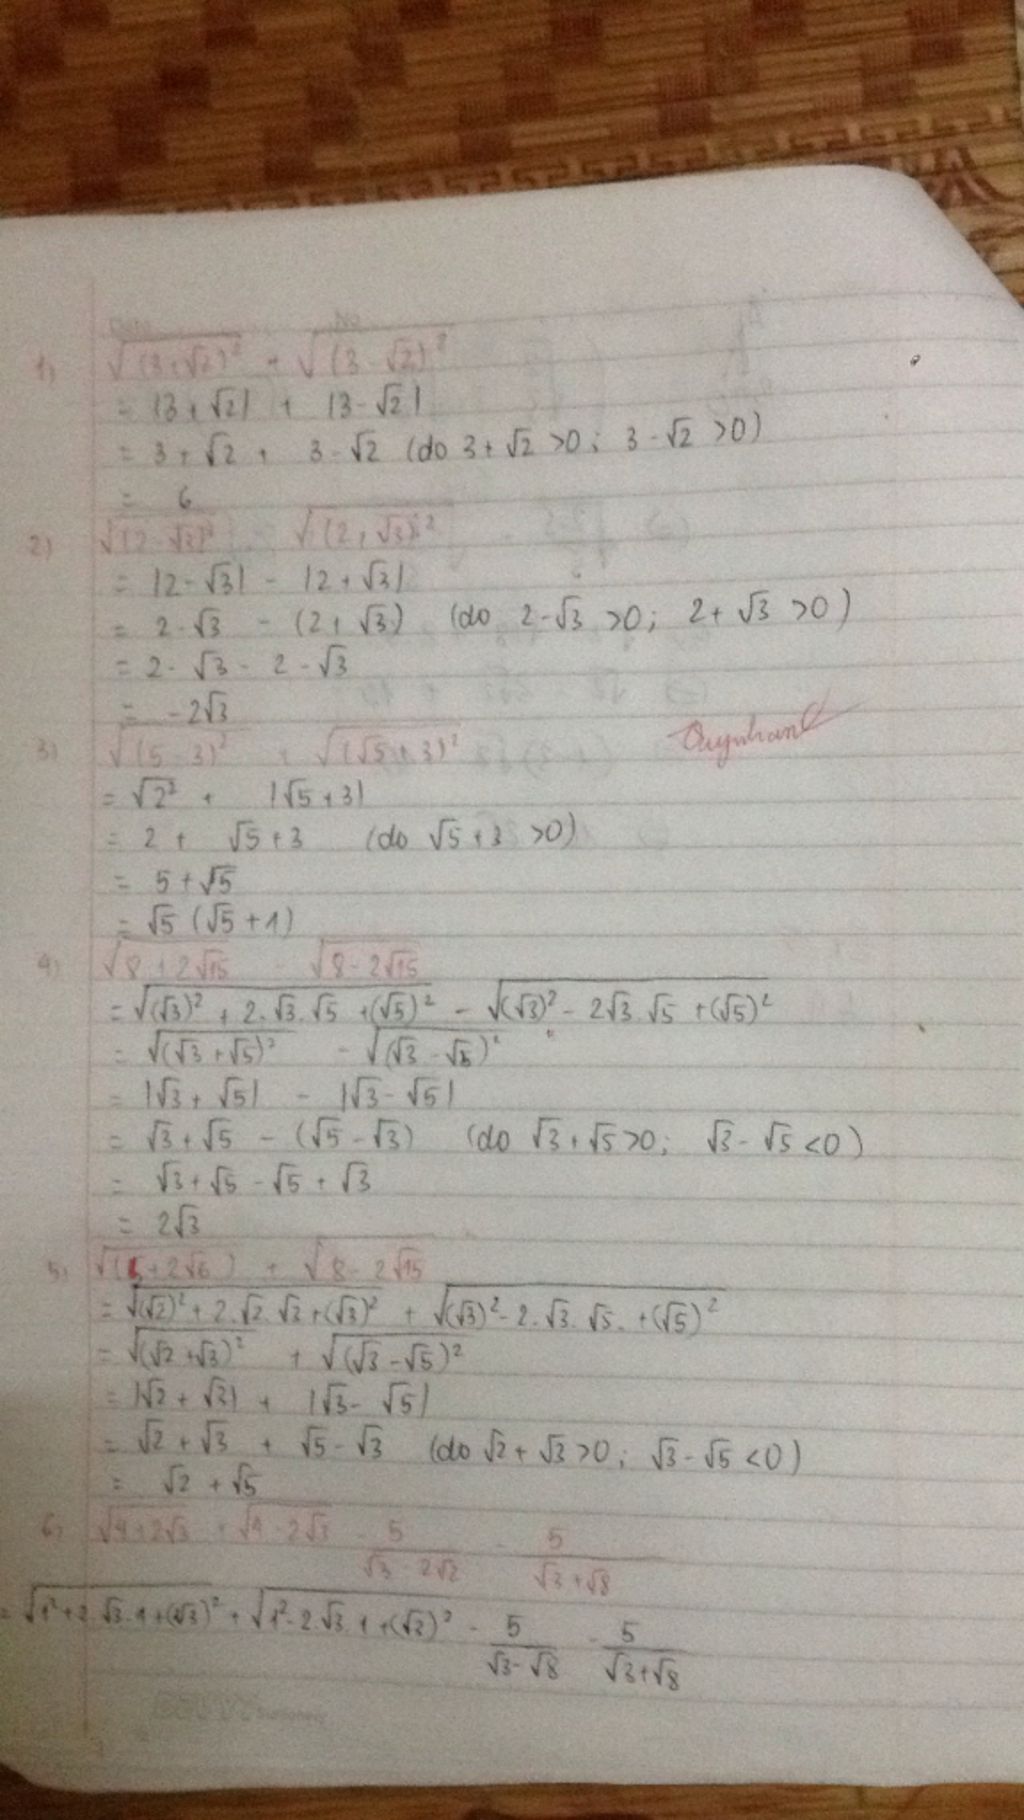 1) √(3+√2)² + √(3-√2)²
= |3+√2| + |3-√2|
= 3+√2 + 3-√2 (do 3+√2 >0; 3-√2 >0)
= 6
2) √(2-√3)² - √(2+√3)²
= |2-√3| - |2+√3|
= 2-√3 - (2+√3) (do 2-√3 >0; 2+√3 >0)
= 2-√3 - 2-√3
= -2√3
3) √(5-3)² + √(√5+3)²
= √2² + |√5+3|
= 2 + √5+3 (do √5+3 >0)
= 5+√5
= √5 (√5+1)
4) √8+2√15 - √8-2√15
= √(√3)² + 2.√3.√5 +(√5)² - √(√3)² - 2√3.√5 +(√5)²
= √(√3+√5)² - √(√3-√5)²
= |√3+√5| - |√3-√5|
= √3+√5 - (√5-√3) (do √3+√5>0; √3-√5 <0)
= √3+√5 - √5 + √3
= 2√3
5) √(5+2√6) + √8-2√15
= √(√2)² + 2.√2.√3+(√3)² + √(√3)² - 2.√3.√5. +(√5)²
= √(√2+√3)² + √(√3-√5)²
= |√2+√3| + |√3-√5|
= √2+√3 + √5-√3 (do √2+√3>0; √3-√5 <0)
= √2 +√5
6) √4+2√3 + √4-2√3 - 5/(√3-2√2) - 5/(√3+√8)
= √1²+2.√3.1+(√3)² + √1²-2.√3.1+(√3)² - 5/(√3-√8) - 5/(√3+√8)